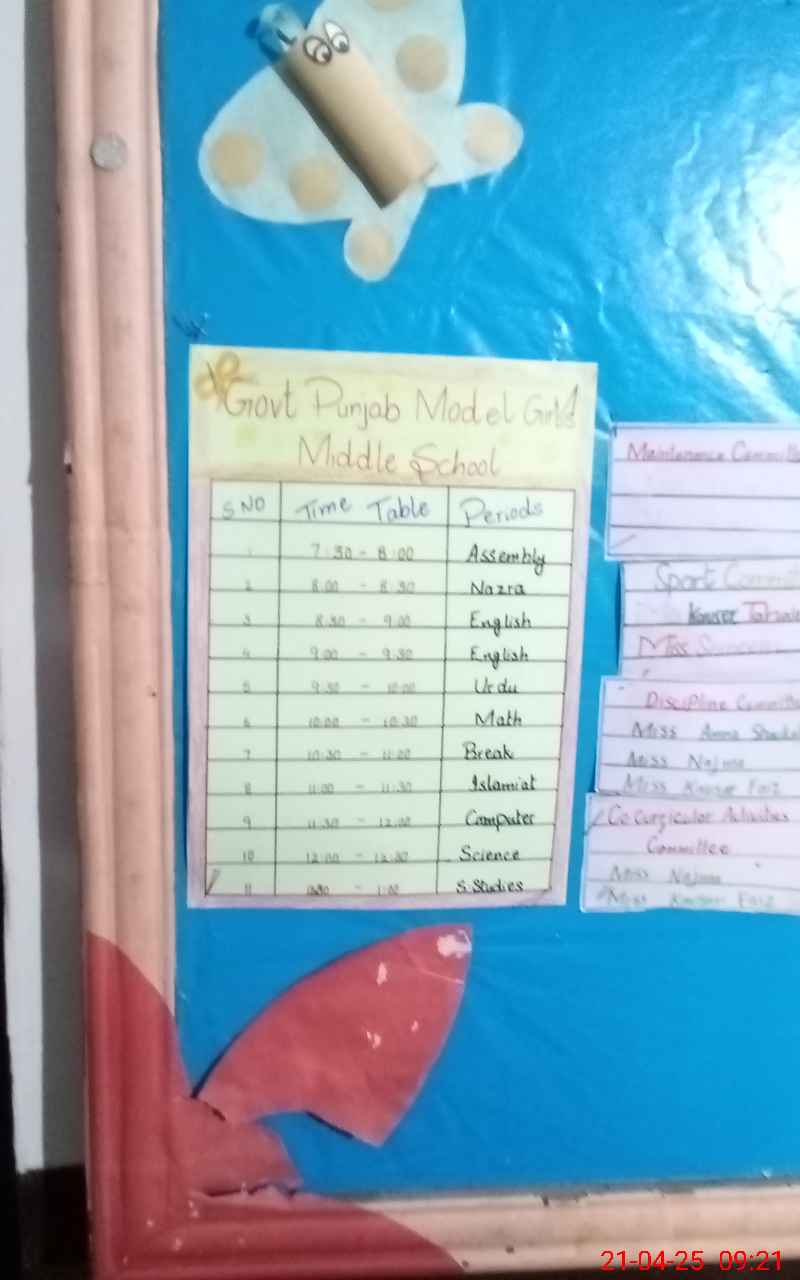 Govt Punjab Model Girls
Middle School
S NO Time Table Periods
1 7:30 - 8:00 Assembly
2 8:00 - 8:30 Nazra
3 8:30 - 9:00 English
4 9:00 - 9:30 English
5 9:30 - 10:00 Urdu
6 10:00 - 10:30 Math
7 10:30 - 11:00 Break
8 11:00 - 11:30 Islamiat
9 11:30 - 12:00 Computer
10 12:00 - 12:30 Science
11 - 1:00 S.Studies
Maintenance Committe
Sport Committ
Kauser
Miss
Discipline Committe
Miss Amna
Miss Najma
Miss Kauser Faiz
Co curgicular Activities
Committee
Miss Najma
Miss Kauser Faiz
21-04-25 09:21